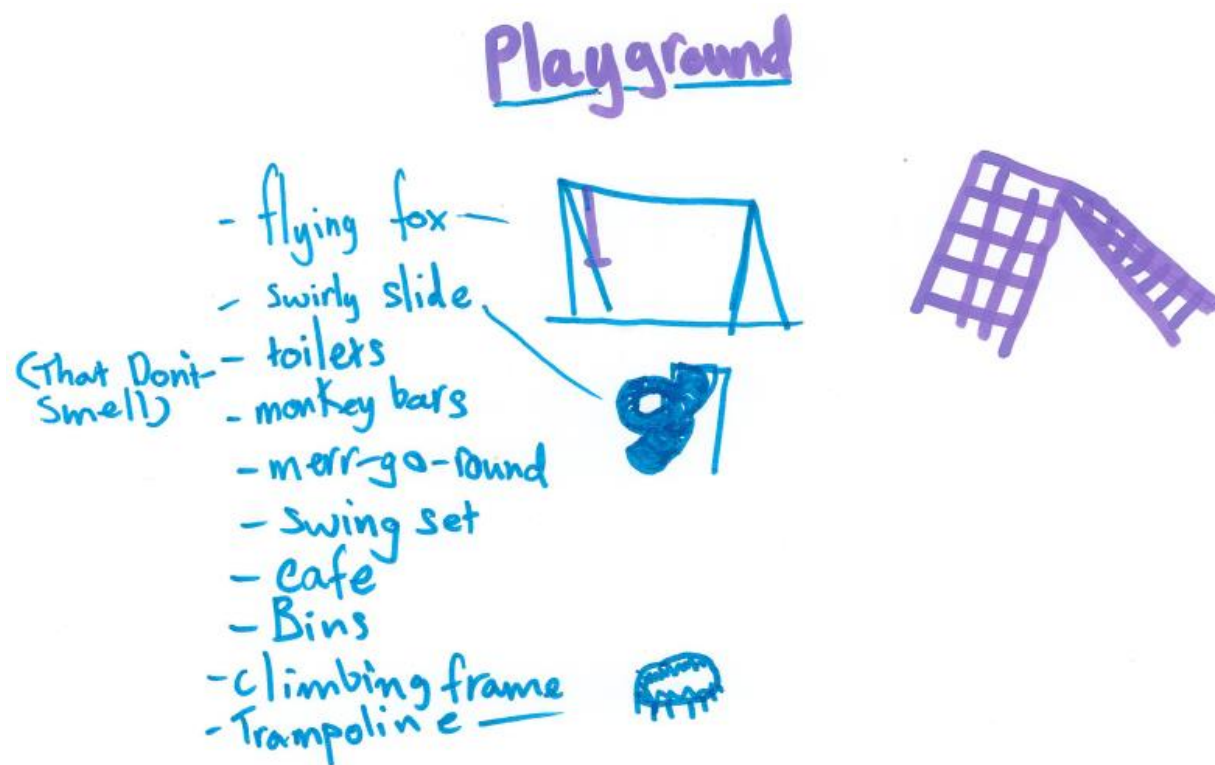 Playground
- flying fox
- swirly slide
- toilets
(That Don't
Smell)
- monkey bars
- merr-go-round
- swing set
- cafe
- Bins
- climbing frame
- Trampoline